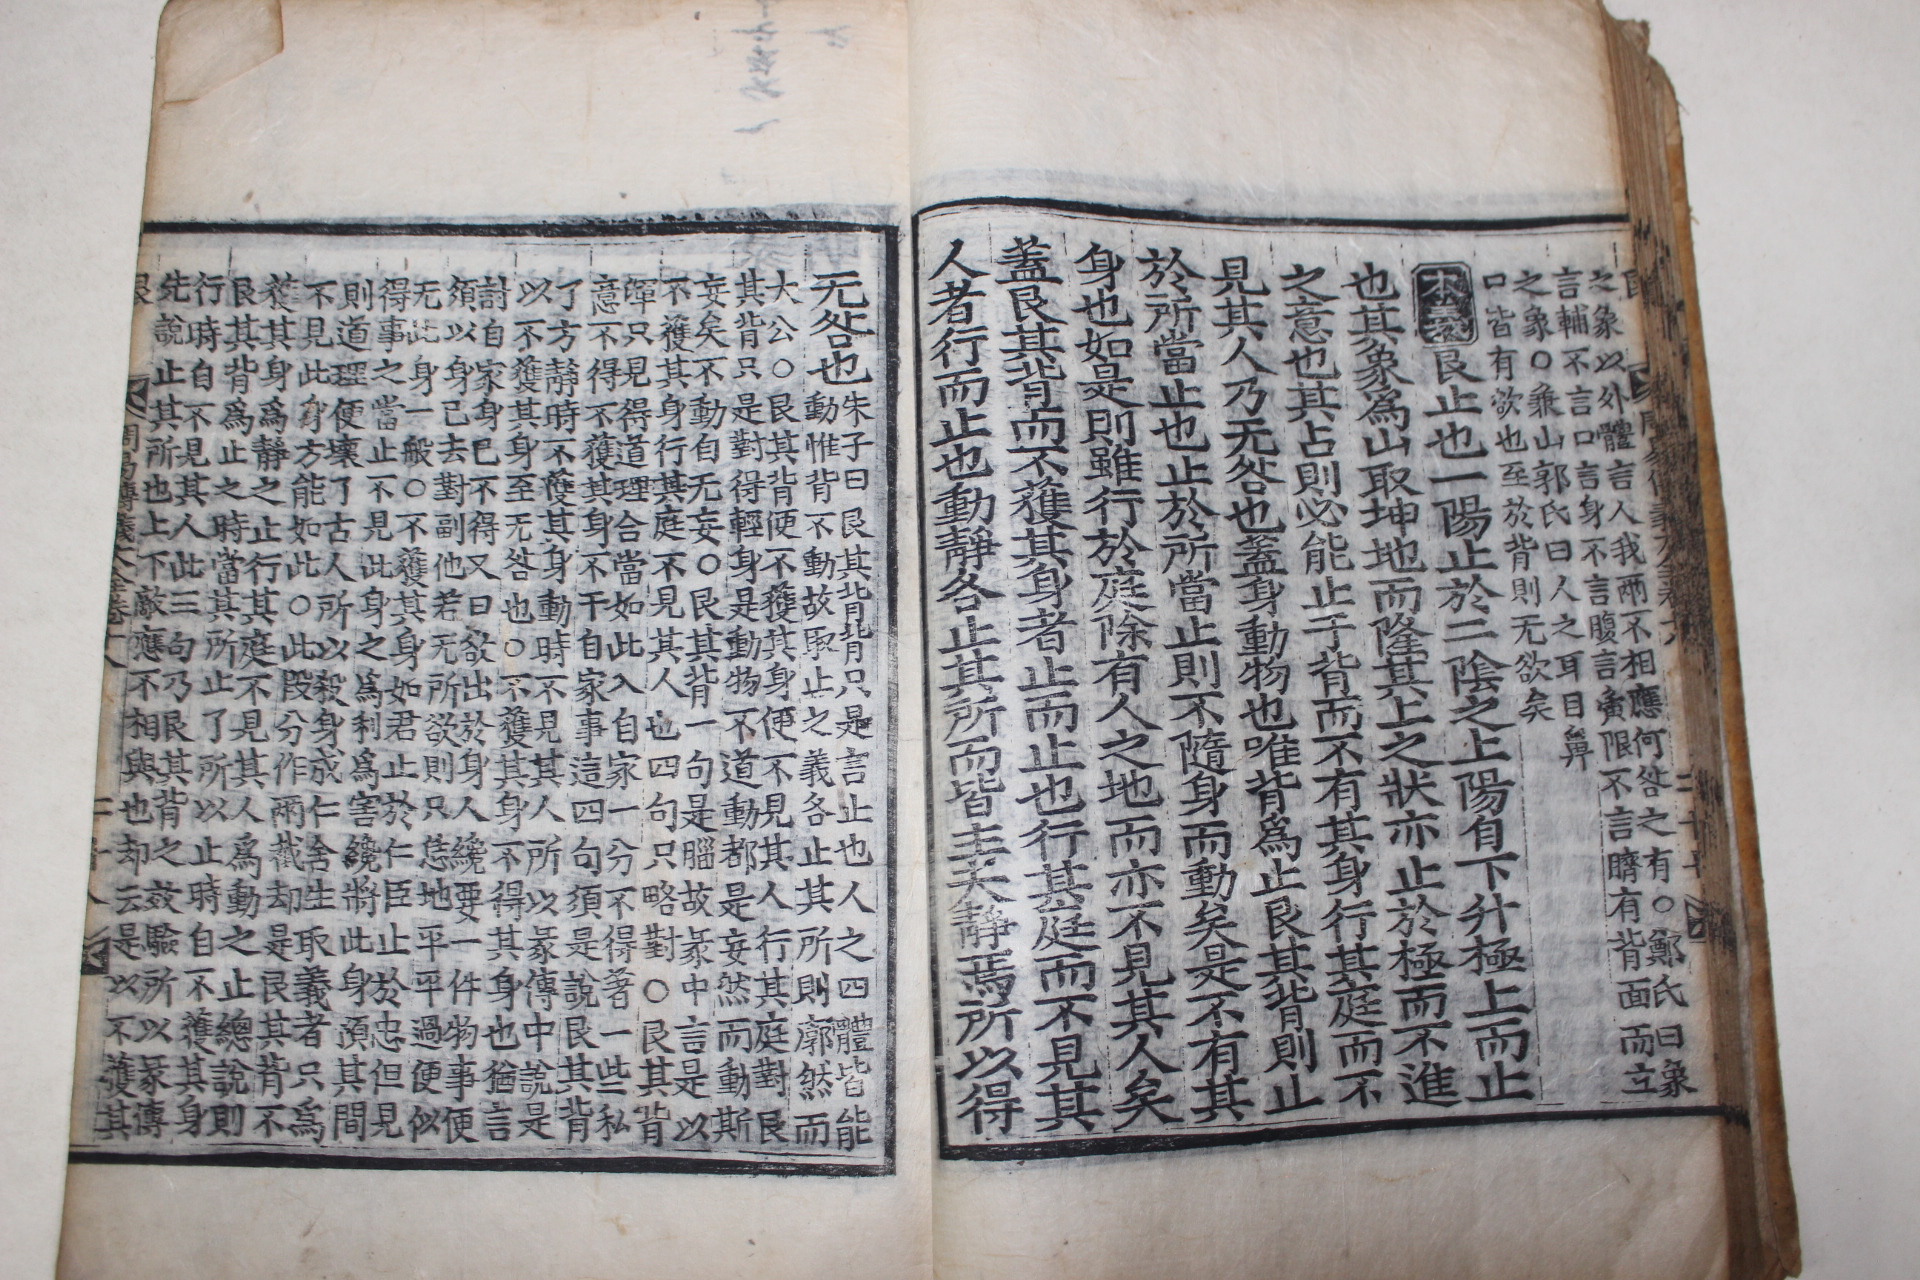 之象以外體言人我兩不相應何咎之有○鄭氏曰象
言輔不言口言身不言腹言夤限不言臍有背面而立
之象○兼山郭氏曰人之耳目鼻
口皆有欲也至於背則无欲矣
本義艮止也一陽止於二陰之上陽自下升極上而止
也其象爲山取坤地而隆其上之狀亦止於極而不進
之意也其占則必能止于背而不有其身行其庭而不
見其人乃无咎也蓋身動物也唯背爲止艮其背則止
於所當止也止於所當止則不隨身而動矣是不有其
身也如是則雖行於庭除有人之地而亦不見其人矣
蓋艮其背而不獲其身者止而止也行其庭而不見其
人者行而止也動靜各止其所而皆主夫靜焉所以得
无咎也
朱子曰艮其背背只是言止也人之四體皆能
動惟背不動故取止之義各止其所則廓然而
大公○艮其背便不獲其身便不見其人行其庭對艮
其背只是對得輕身是動物不道動都是妄然而動斯
妄矣不動自无妄○艮其背一句是腦故彖中言是以
不獲其身行其庭不見其人也四句只略對○艮其背
渾只見得道理合當如此入自家一分不得著一些私
意不得不獲其身不干自家事這四句須是說艮其背
了方靜時不獲其身動時不見其人所以彖傳中說是
以不獲其身至无咎也○不獲其身不得其身也猶言
討自家身己不得又曰欲出於身人纔要一件物事便
須以身己去對副他若无所欲則只恁地平平過便似
无此身一般○不獲其身如君止於仁臣止於忠但見
得事之當止不見此身之爲利爲害纔將此身預其間
則道理便壞了古人所以殺身成仁舍生取義者只爲
不見此身方能如此○此段分作兩截却是艮其背不
獲其身爲靜之止行其庭不見其人爲動之止總說則
艮其背爲止之時當其所止了所以止時自不獲其身
行時自不見其人此三句乃艮其背之效驗所以彖傳
先說止其所也上下敵應不相與也却云是以不獲其
艮 周易傳義大全卷十八 二十八